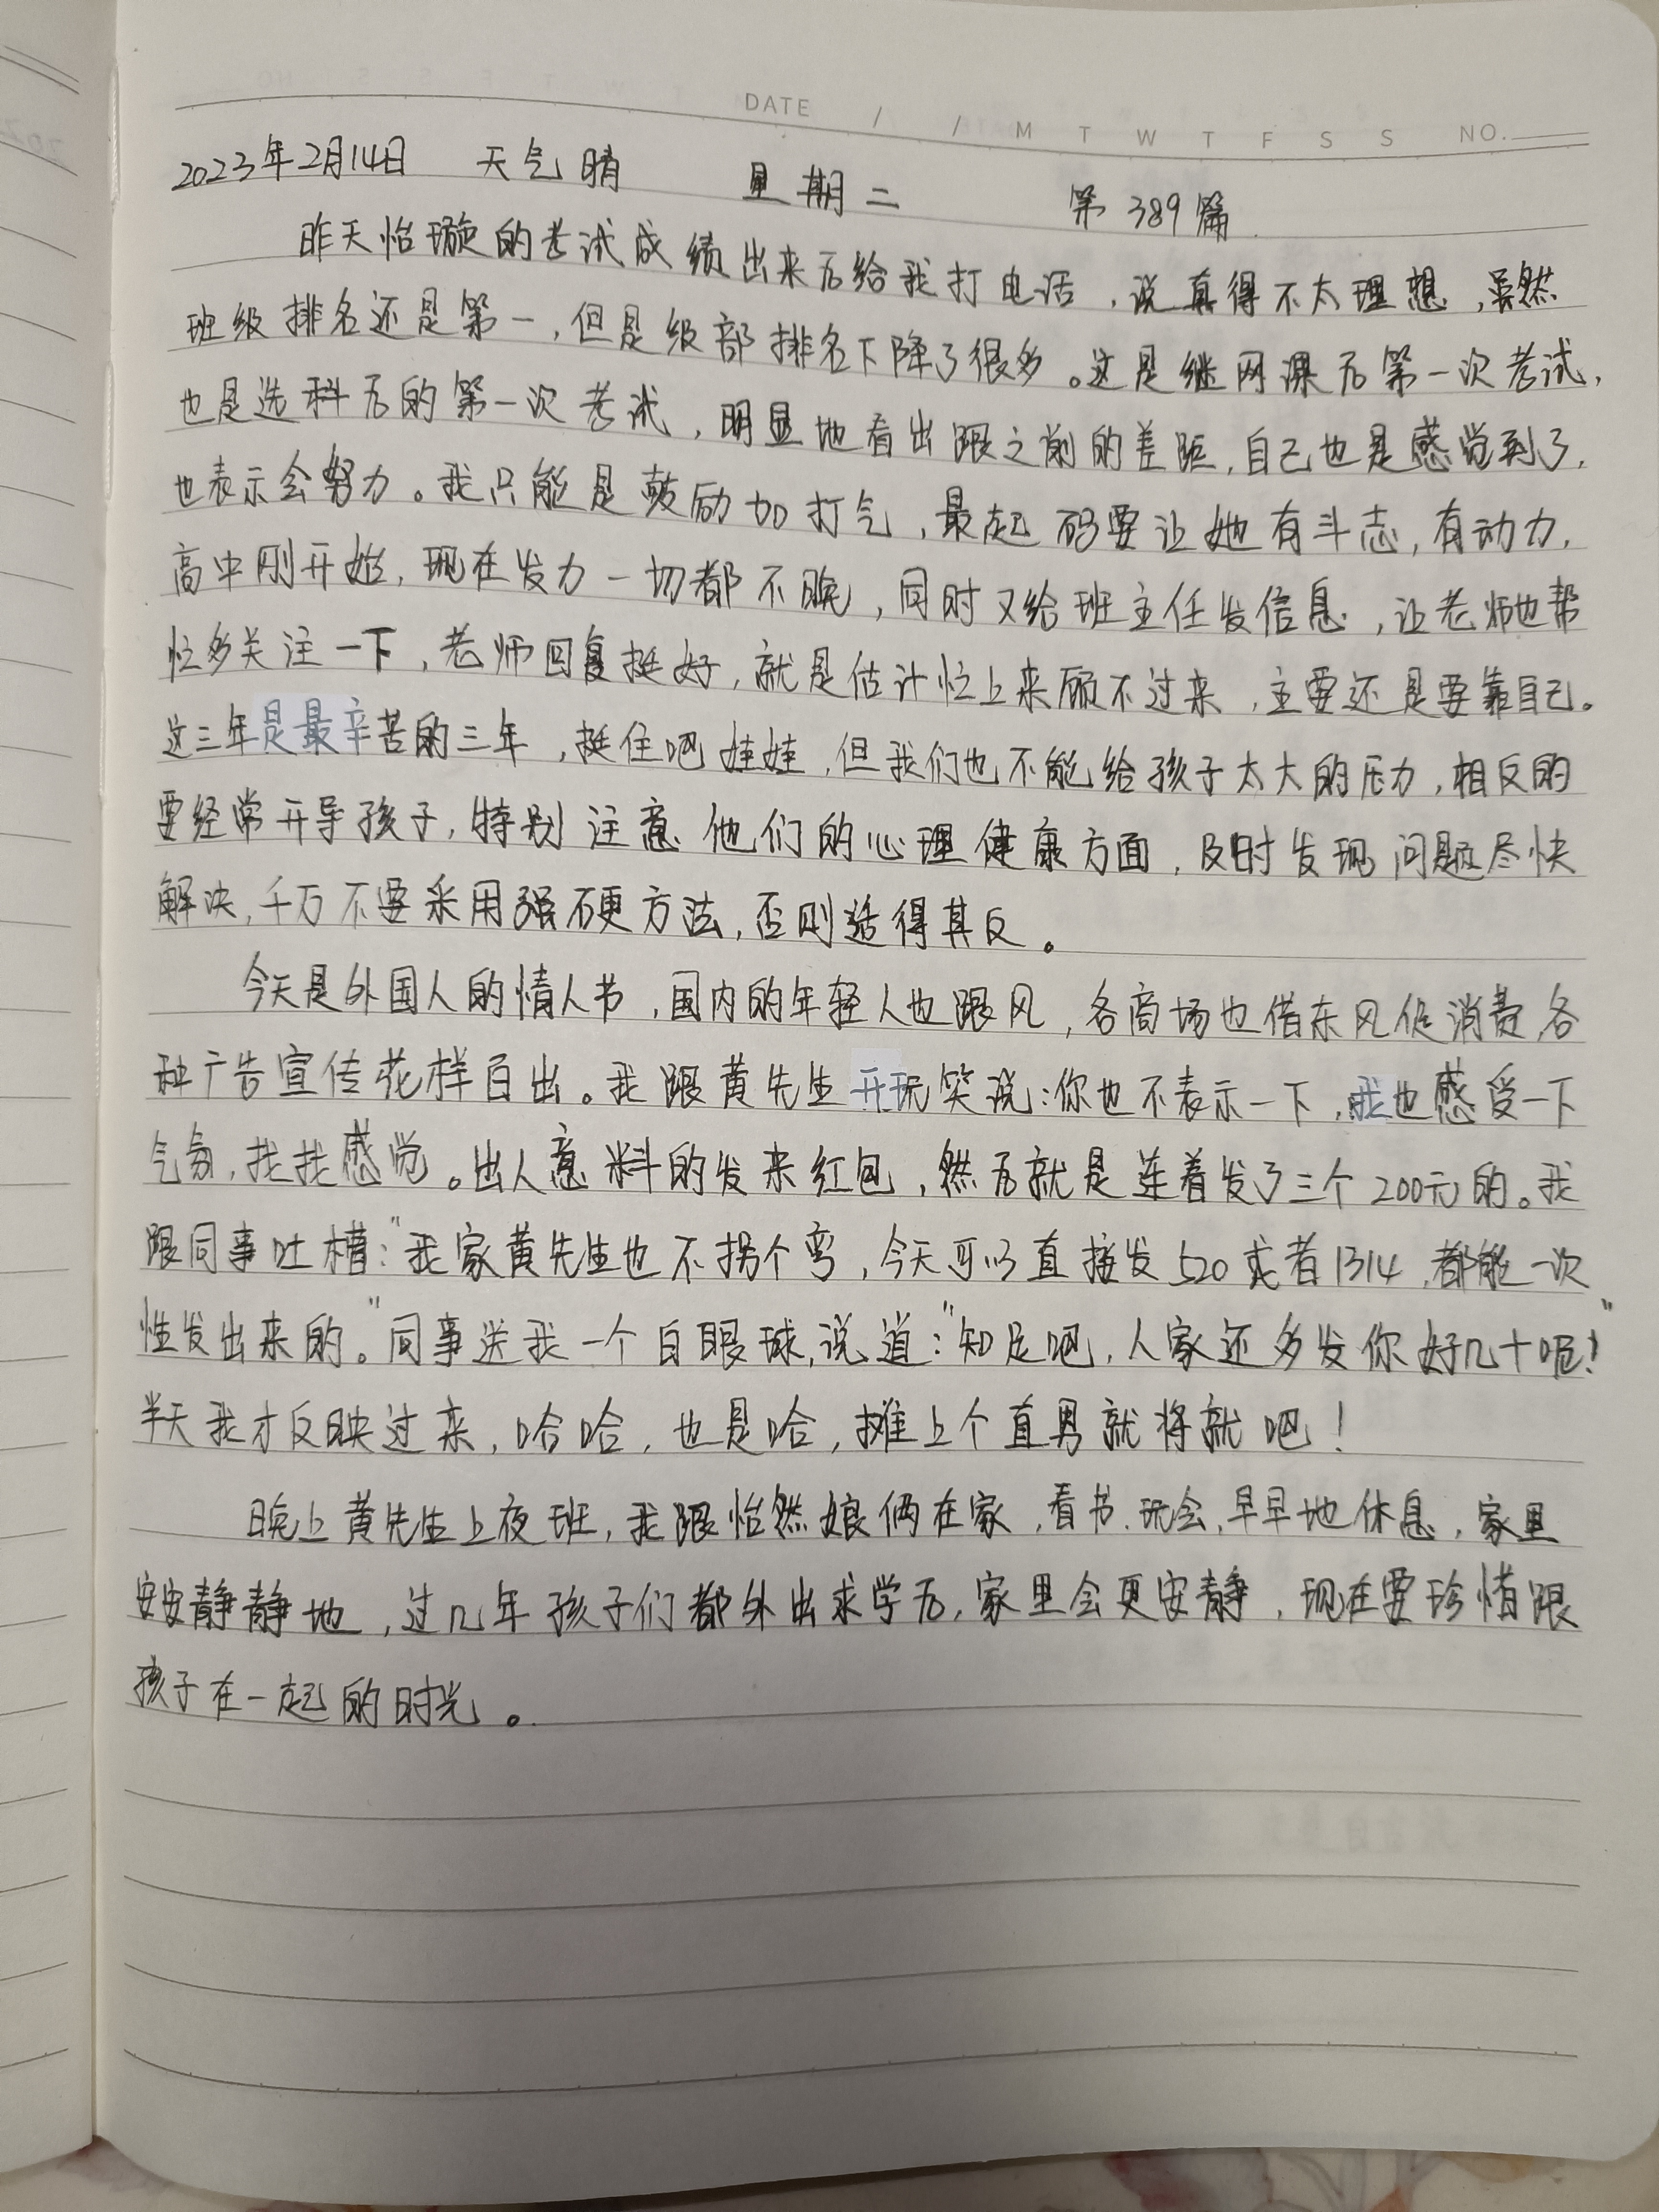 DATE / / M T W T F S S NO.
2023年2月14日 天气晴 星期二 第389篇
昨天怡璇的考试成绩出来后给我打电话，说真得不太理想，虽然
班级排名还是第一，但是级部排名下降了很多。这是继网课后第一次考试，
也是选科后的第一次考试，明显地看出跟之前的差距，自己也是感觉到了，
也表示会努力。我只能是鼓励加打气，最起码要让她有斗志，有动力，
高中刚开始，现在发力一切都不晚，同时又给班主任发信息，让老师也帮
忙多关注一下，老师回复挺好，就是估计忙上来顾不过来，主要还是要靠自己。
这三年是最辛苦的三年，挺住吧娃娃，但我们也不能给孩子太大的压力，相反的
要经常开导孩子，特别注意他们的心理健康方面，及时发现问题尽快
解决，千万不要采用强硬方法，否则适得其反。
今天是外国人的情人节，国内的年轻人也跟风，各商场也借东风促消费，各
种广告宣传花样百出。我跟黄先生开玩笑说：你也不表示一下，我也感受一下
气氛，找找感觉。出人意料的发来红包，然后就是连着发了三个200元的。我
跟同事吐槽："我家黄先生也不拐个弯，今天可以直接发520或者1314，都能一次
性发出来的。"同事送我一个白眼球，说道："知足吧，人家还多发你好几十呢！"
半天我才反映过来，哈哈，也是哈，摊上个直男就将就吧！
晚上黄先生上夜班，我跟怡然娘俩在家，看书、玩会，早早地休息，家里
安安静静地，过几年孩子们都外出求学后，家里会更安静，现在要珍惜跟
孩子在一起的时光。